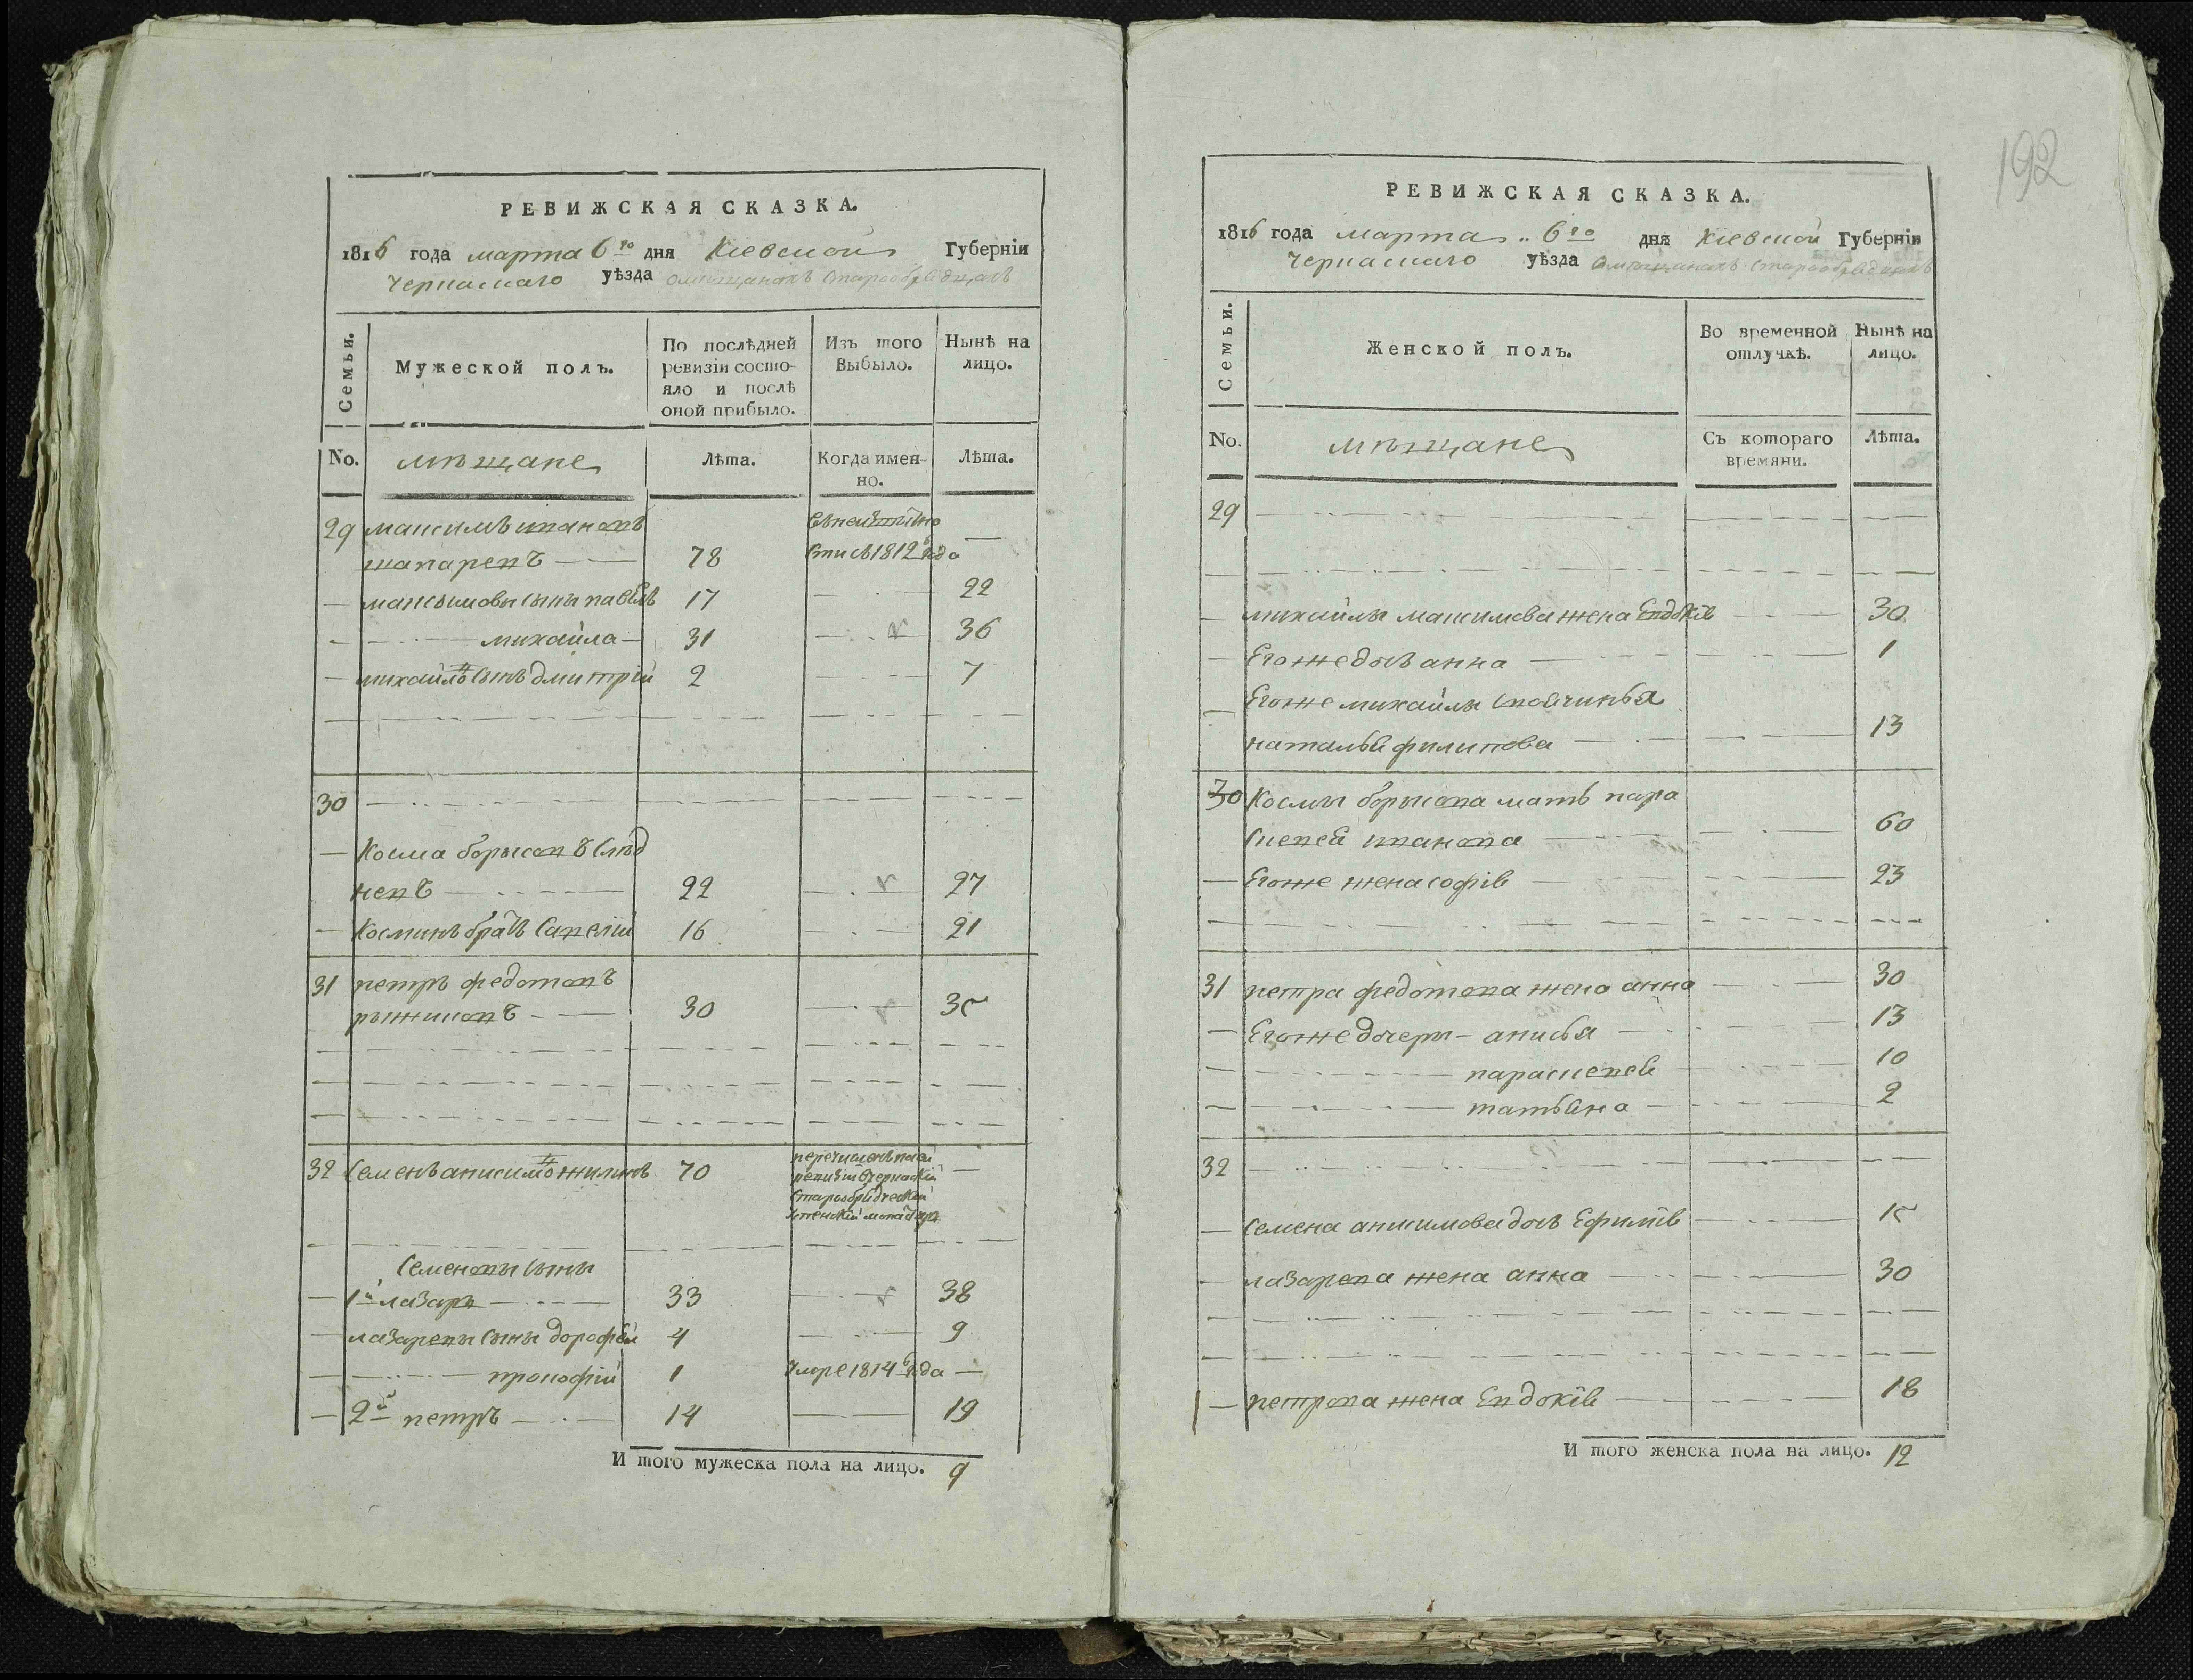 192
РЕВИЖСКАЯ СКАЗКА.
1816 года марта 6го дня Кіевской Губерніи
Черкаскаго уѣзда омещанахъ старообрядцахъ
Семьи.
Мужеской полъ.
По послѣдней ревизіи состояло и послѣ оной прибыло.
Изъ того Выбыло.
Нынѣ на лицо.
No. мѣщане Лѣта. Когда именно. Лѣта.
29 максимъ ивановъ
шапаревъ 78 1812 года —
— максимовы сыны павелъ 17 — 22
— михайла — 31 — 36
— михайлов сынъ дмитрій 2 — 7
30
— Косма борисовъ Слѣд
невъ 22 — 27
— Косминъ братъ Савелій 16 — 21
31 петръ федотовъ
рыжиковъ 30 — 35
32 Семенъ анисимов жилинъ 70 перечисленъ по сей —
ревизіи вчеркаскій
Старообрядческій
монастыр
Семеновы сыны
— 1й лазарь 33 — 38
— лазаревы сыны дорофей 4 — 9
— прокофій 1 умре 1814 года —
— 2й петръ 14 — 19
И того мужеска пола на лицо. 9
РЕВИЖСКАЯ СКАЗКА.
1816 года марта 6го дня Кіевской Губерніи
Черкаскаго уѣзда омещанахъ старообрядцахъ
Семьи.
Женской полъ.
Во временной отлучкѣ.
Нынѣ на лицо.
No. мѣщане Съ котораго времяни. Лѣта.
29
— михайлы максимова жена Евдокія 30
— Егоже дочь анна 1
— Егоже михайлы
наталья филипова 13
30 Космы борисова мать пара
скевея иванова 60
— Егоже жена софія 23
31 петра федотова жена анна 30
— Егоже дочери — анисья 13
— параскевея 10
— татьяна 2
32
— Семена анисимова дочь Ефимія 15
— лазарева жена анна 30
— петрова жена Евдокія 18
И того женска пола на лицо. 12